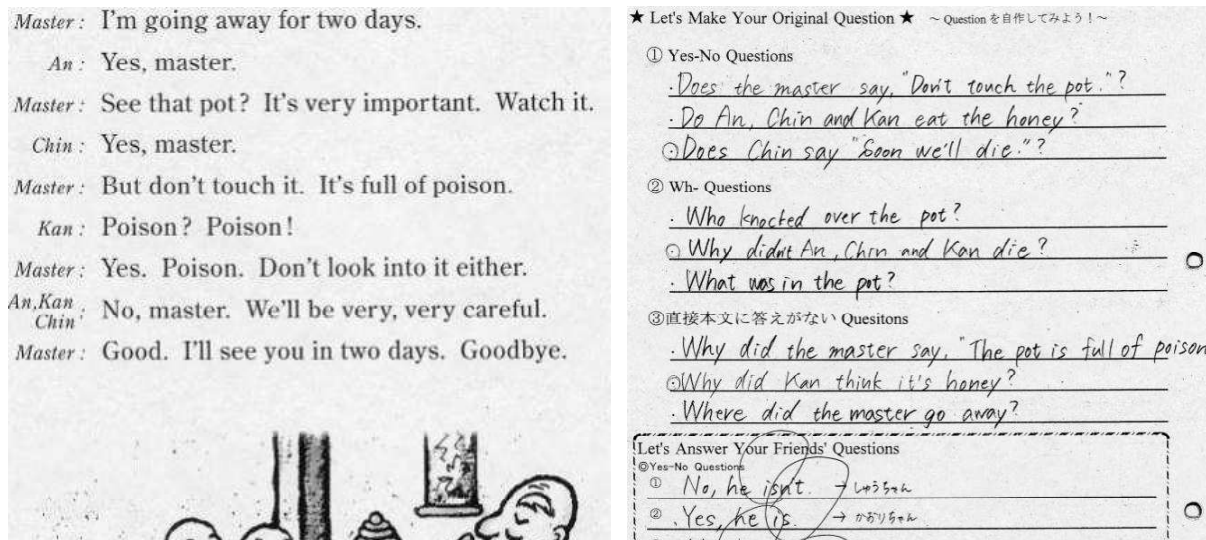 Master : I'm going away for two days.
An : Yes, master.
Master : See that pot? It's very important. Watch it.
Chin : Yes, master.
Master : But don't touch it. It's full of poison.
Kan : Poison? Poison!
Master : Yes. Poison. Don't look into it either.
An,Kan Chin : No, master. We'll be very, very careful.
Master : Good. I'll see you in two days. Goodbye.
★ Let's Make Your Original Question ★ ～Questionを自作してみよう！～
① Yes-No Questions
・Does the master say, "Don't touch the pot."?
・Do An, Chin and Kan eat the honey?
⊙Does Chin say "Soon we'll die."?
② Wh- Questions
・Who knocked over the pot?
⊙Why didn't An, Chin and Kan die?
・What was in the pot?
③直接本文に答えがない Quesitons
・Why did the master say, "The pot is full of poison
⊙Why did Kan think it's honey?
・Where did the master go away?
Let's Answer Your Friends' Questions
◎Yes-No Questions
① No, he isn't. → しゅうちゃん
② ・Yes, he is. → かおりちゃん